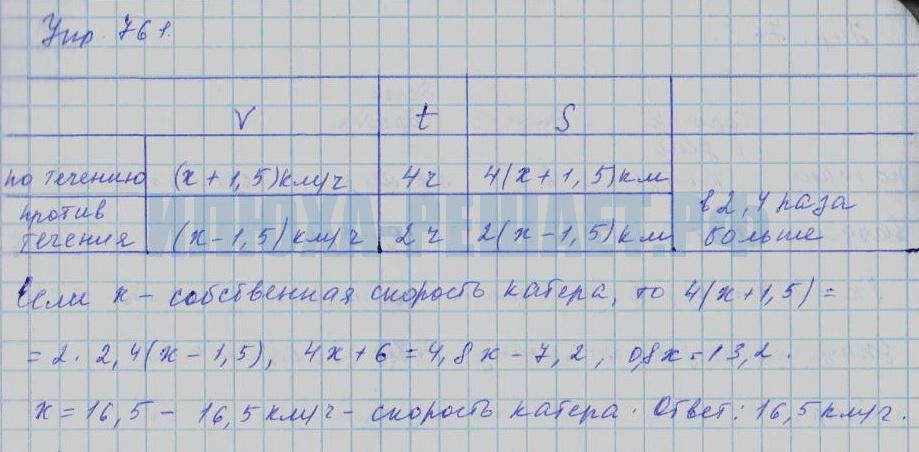 Упр 761.
V t S
по течению (x+1,5)км/ч 4ч 4(x+1,5)км
против течения (x-1,5)км/ч 2ч 2(x-1,5)км
в 2,4 раза
больше
Если x - собственная скорость катера, то 4(x+1,5)=
=2·2,4(x-1,5), 4x+6=4,8x-7,2, 0,8x=13,2.
x=16,5 - 16,5км/ч - скорость катера. Ответ: 16,5км/ч.